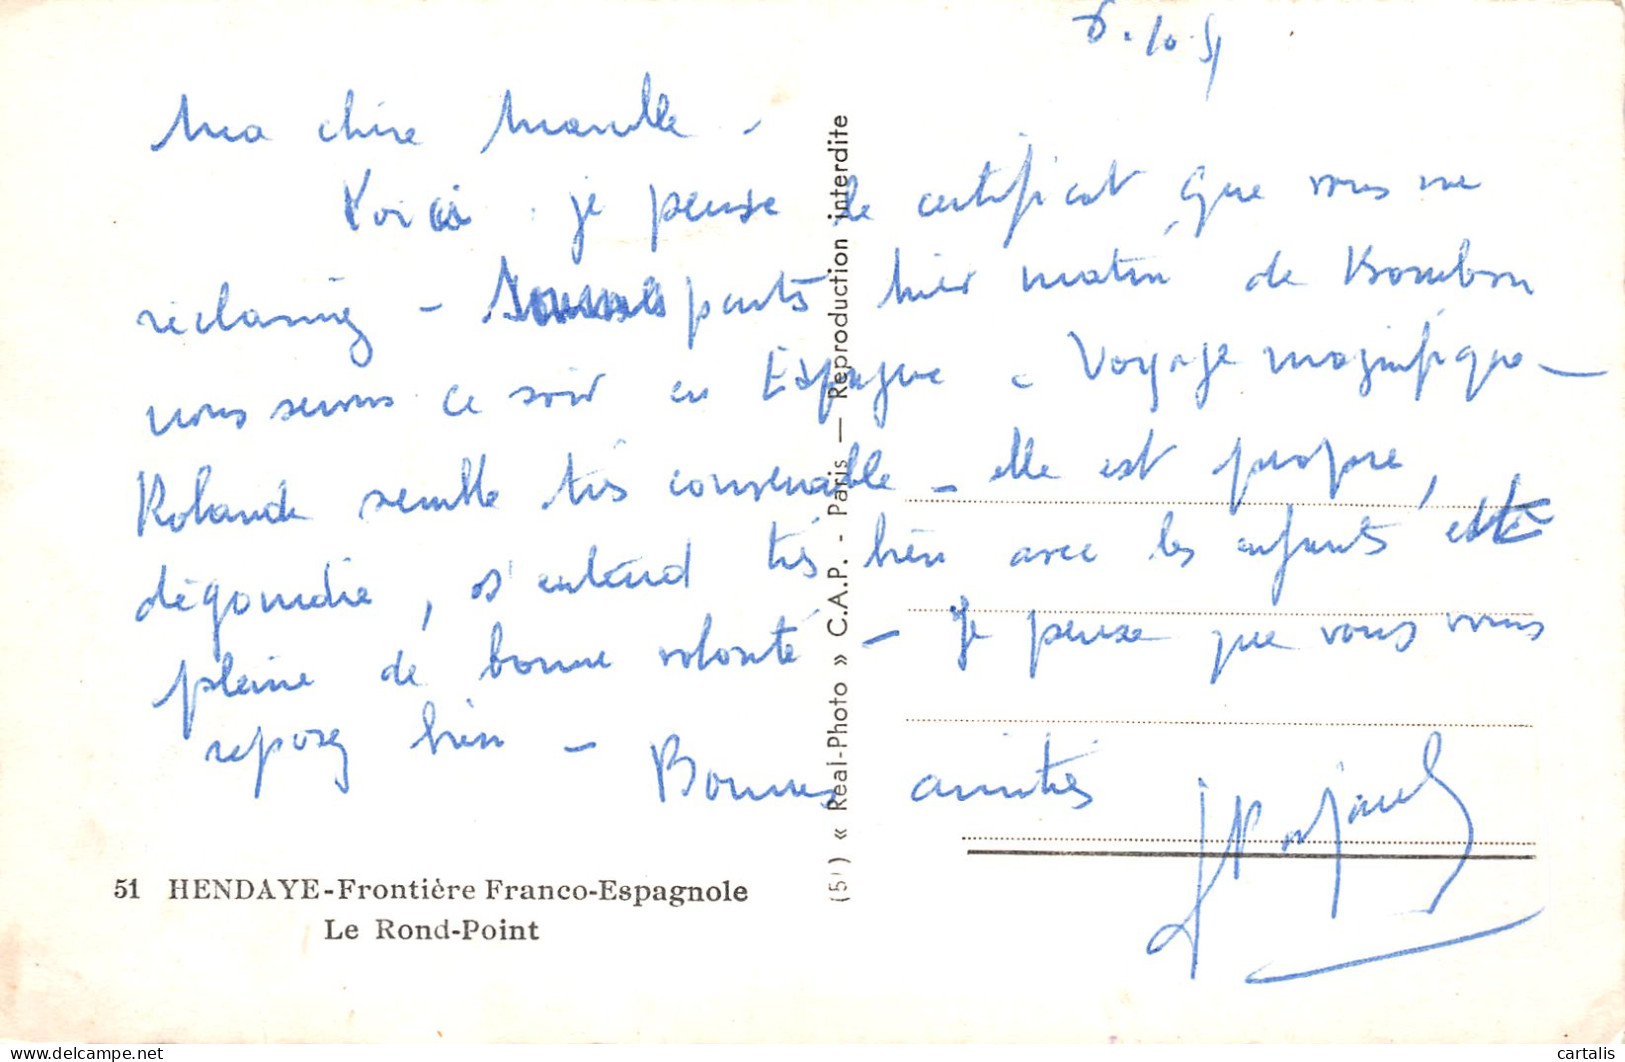 6.10.51
Ma chère
Voici je pense le certificat que vous me
réclamiez - Sommes partis hier matin de Bourbon
nous serons ce soir en Espagne - Voyage magnifique -
Rolande semble très convenable - elle est propre,
dégourdie, s'entend très bien avec les enfants et est
pleine de bonne volonté - Je pense que vous vous
reposez bien - Bonnes amitiés
51 HENDAYE-Frontière Franco-Espagnole
Le Rond-Point
(51) « Real-Photo » C.A.P. - Paris — Reproduction interdite
https://www.delcampe.net
cartalis